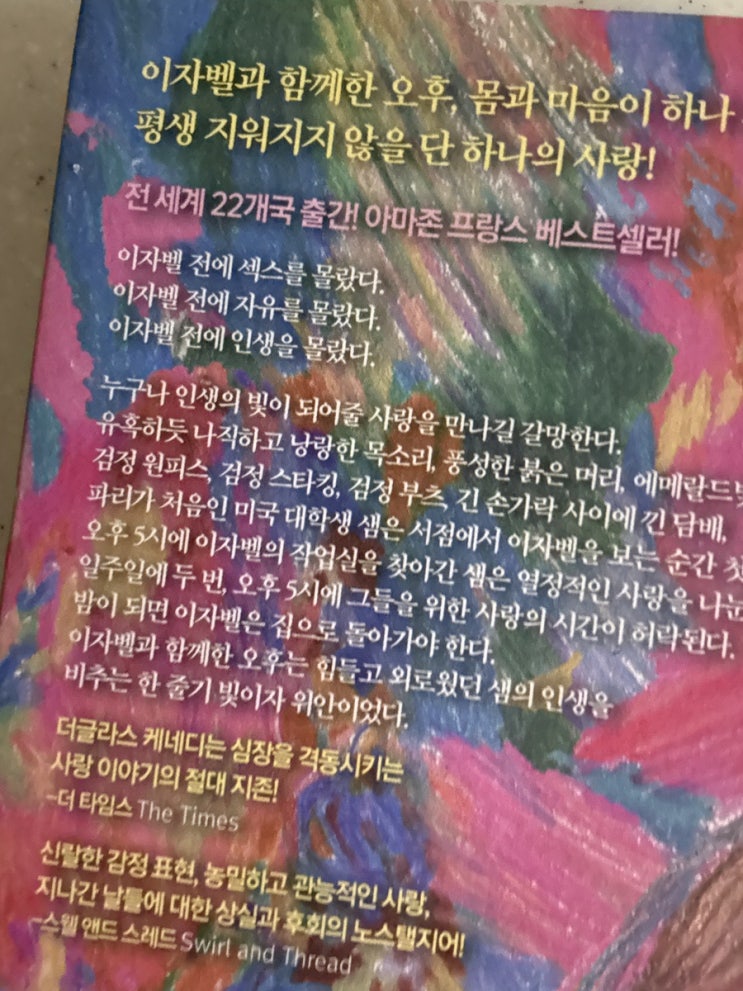 이자벨과 함께한 오후, 몸과 마음이 하나
평생 지워지지 않을 단 하나의 사랑!
전 세계 22개국 출간! 아마존 프랑스 베스트셀러!
이자벨 전에 섹스를 몰랐다.
이자벨 전에 자유를 몰랐다.
이자벨 전에 인생을 몰랐다.
누구나 인생의 빛이 되어줄 사랑을 만나길 갈망한다.
유혹하듯 나직하고 낭랑한 목소리, 풍성한 붉은 머리, 에메랄드빛
검정 원피스, 검정 스타킹, 검정 부츠, 긴 손가락 사이에 낀 담배,
파리가 처음인 미국 대학생 샘은 서점에서 이자벨을 보는 순간 첫
오후 5시에 이자벨의 작업실을 찾아간 샘은 열정적인 사랑을 나눈
일주일에 두 번, 오후 5시에 그들을 위한 사랑의 시간이 허락된다.
밤이 되면 이자벨은 집으로 돌아가야 한다.
이자벨과 함께한 오후는 힘들고 외로웠던 샘의 인생을
비추는 한 줄기 빛이자 위안이었다.
더글라스 케네디는 심장을 격동시키는
사랑 이야기의 절대 지존!
-더 타임스 The Times
신랄한 감정 표현, 농밀하고 관능적인 사랑,
지나간 날들에 대한 상실과 후회의 노스탤지어!
-스웰 앤드 스레드 Swirl and Thread